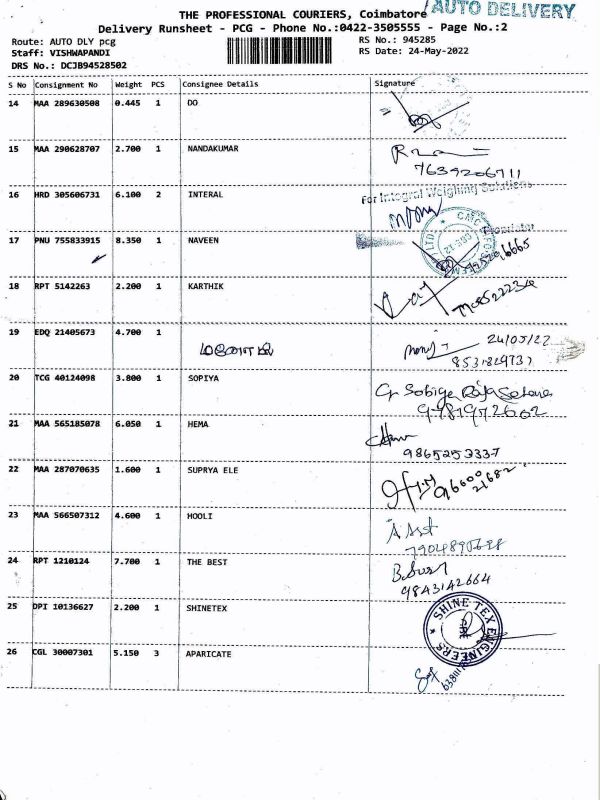 THE PROFESSIONAL COURIERS, Coimbatore
AUTO DELIVERY
Delivery Runsheet - PCG - Phone No.:0422-3505555 - Page No.:2
Route: AUTO DLY pcg
RS No.: 945285
Staff: VISHWAPANDI
RS Date: 24-May-2022
DRS No.: DCJB94528502
S No Consignment No Weight PCS Consignee Details Signature
14 MAA 289630508 0.445 1 DO
15 MAA 290628707 2.700 1 NANDAKUMAR
7639206711
16 HRD 305606731 6.100 2 INTERAL
For Integral Weighing Solutions
Proprietor
17 PNU 755833915 8.350 1 NAVEEN
18 RPT 5142263 2.200 1 KARTHIK
19 EDQ 21405673 4.700 1
24/05/22
20 TCG 40124098 3.800 1 SOPIYA
21 MAA 565185078 6.050 1 HEMA
9865253337
22 MAA 287070635 1.600 1 SUPRYA ELE
23 MAA 566507312 4.600 1 HOOLI
24 RPT 1210124 7.700 1 THE BEST
9843142664
25 DPI 10136627 2.200 1 SHINETEX
SHINE TEX ENGINEERS
CBE
26 CGL 30007301 5.150 3 APARICATE